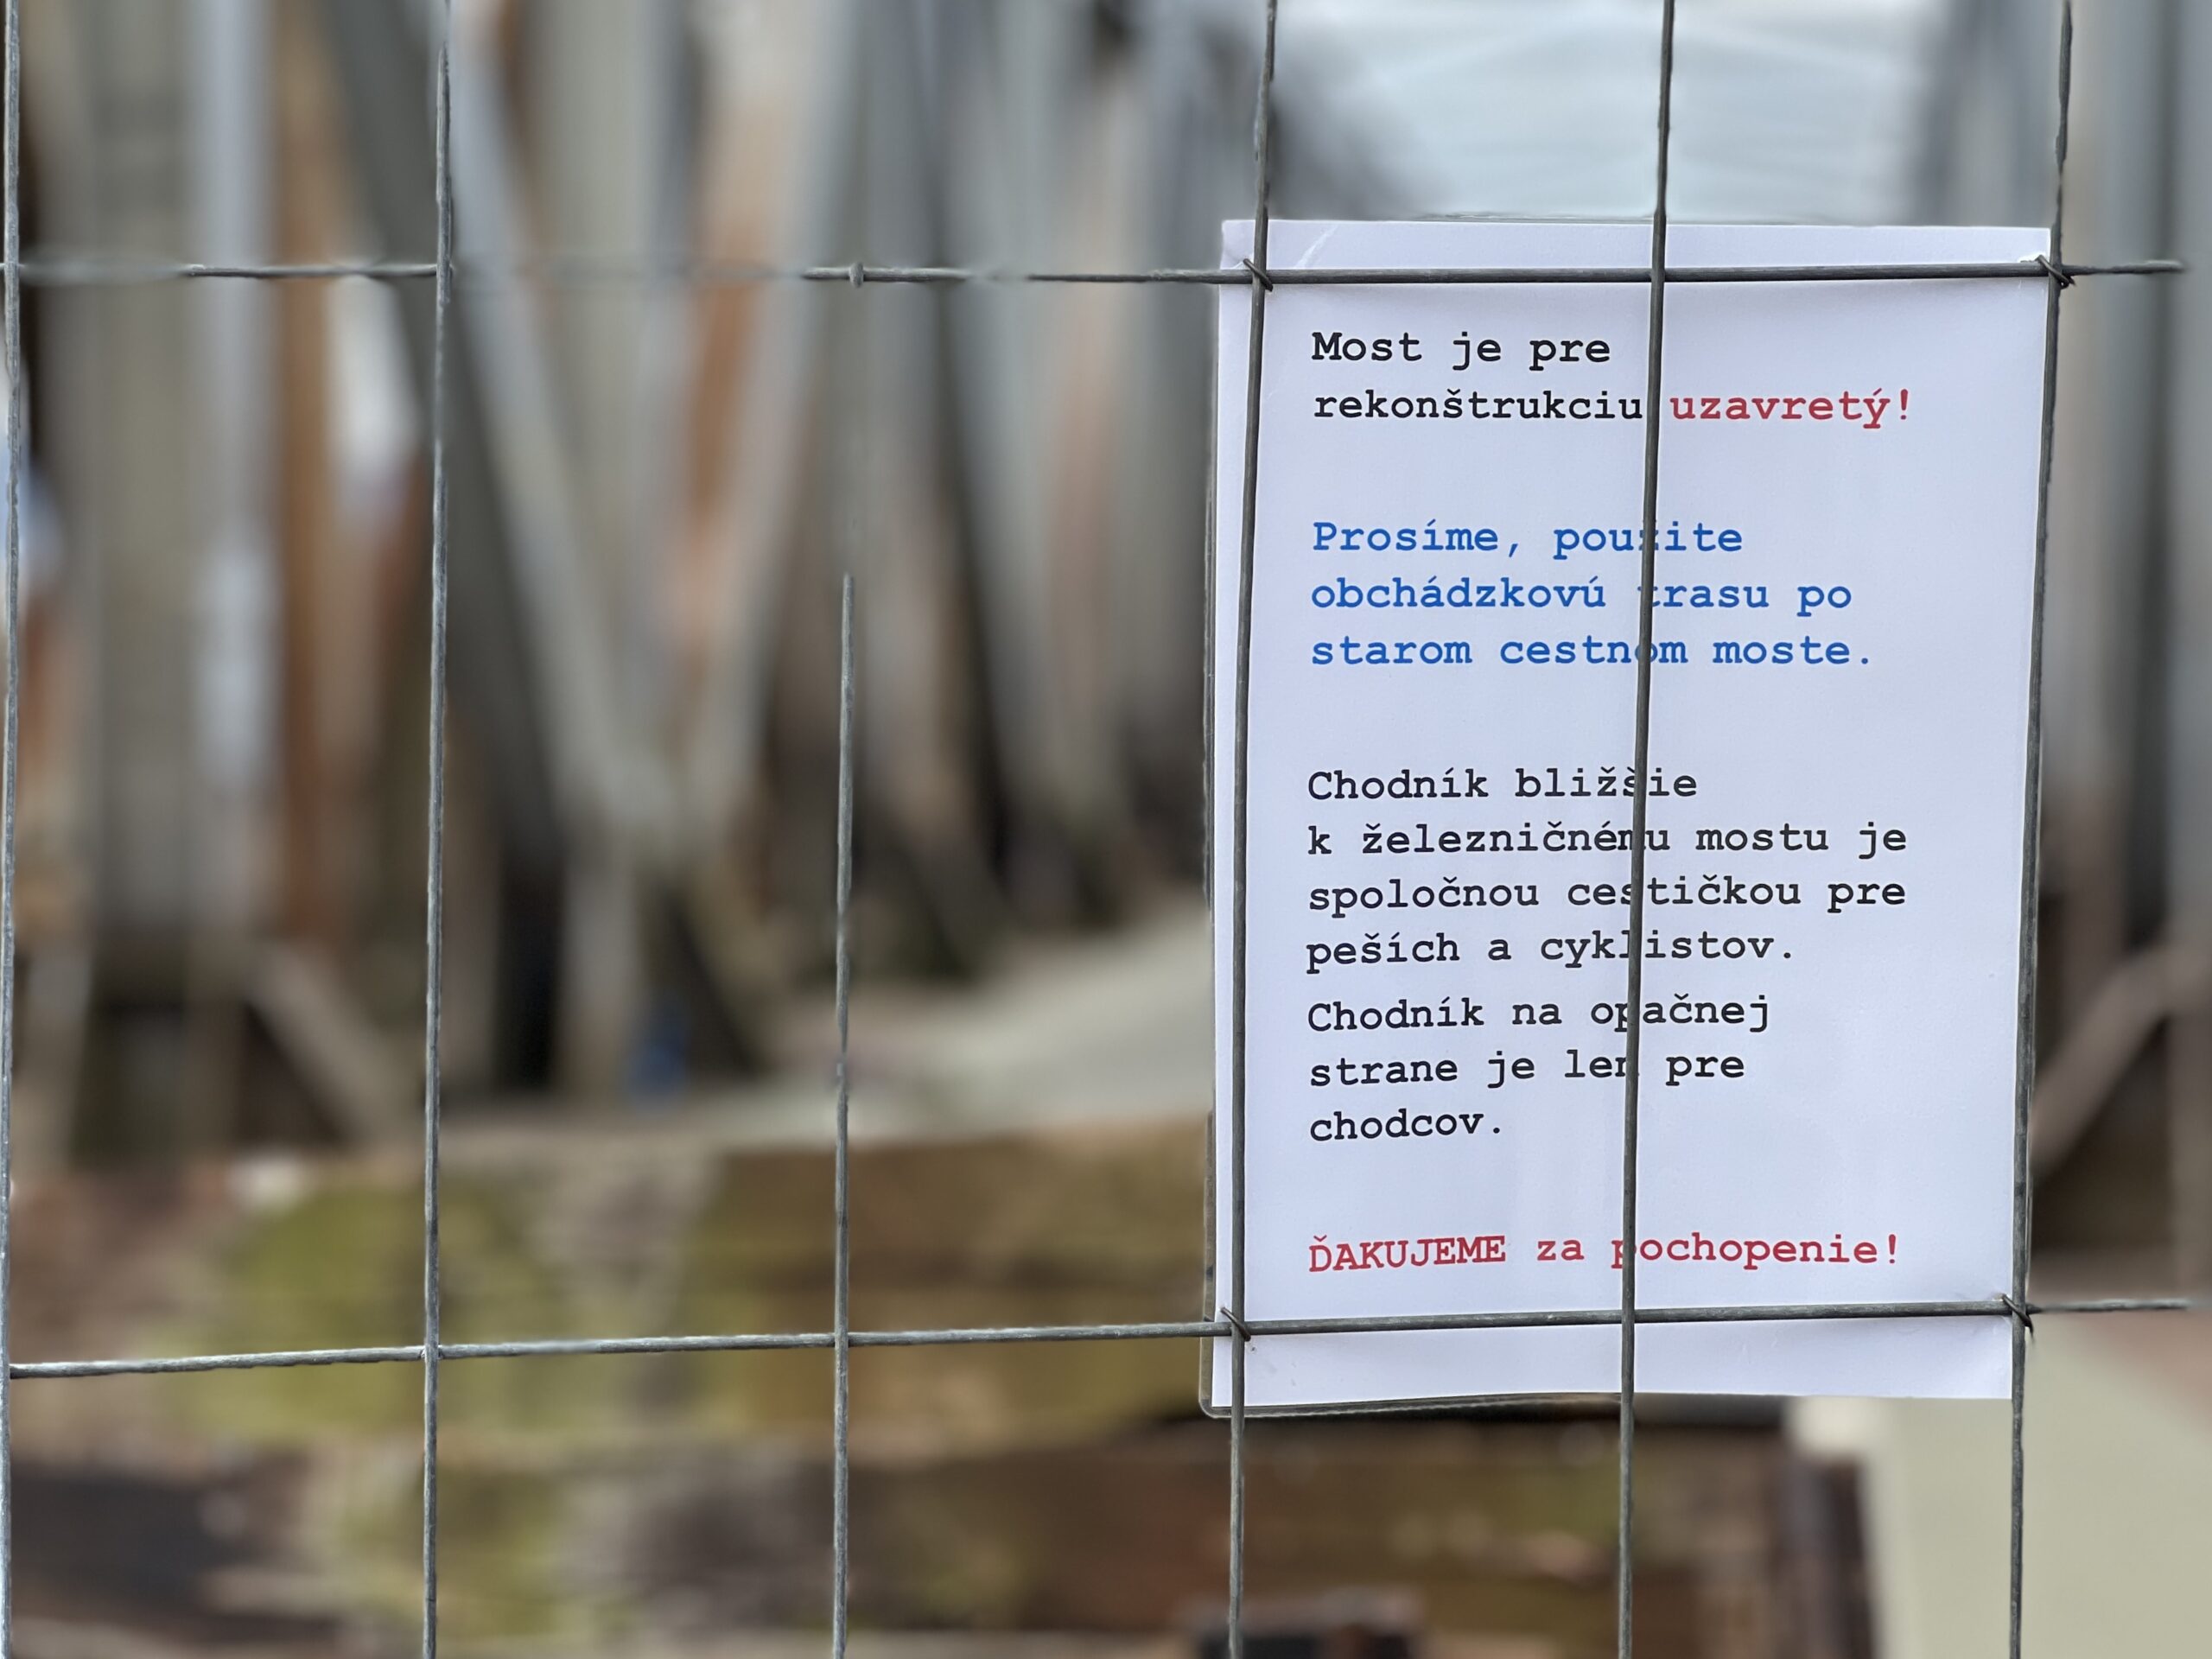 Most je pre
rekonštrukciu uzavretý!
Prosíme, použite
obchádzkovú trasu po
starom cestnom moste.
Chodník bližšie
k železničnému mostu je
spoločnou cestičkou pre
peších a cyklistov.
Chodník na opačnej
strane je len pre
chodcov.
ĎAKUJEME za pochopenie!